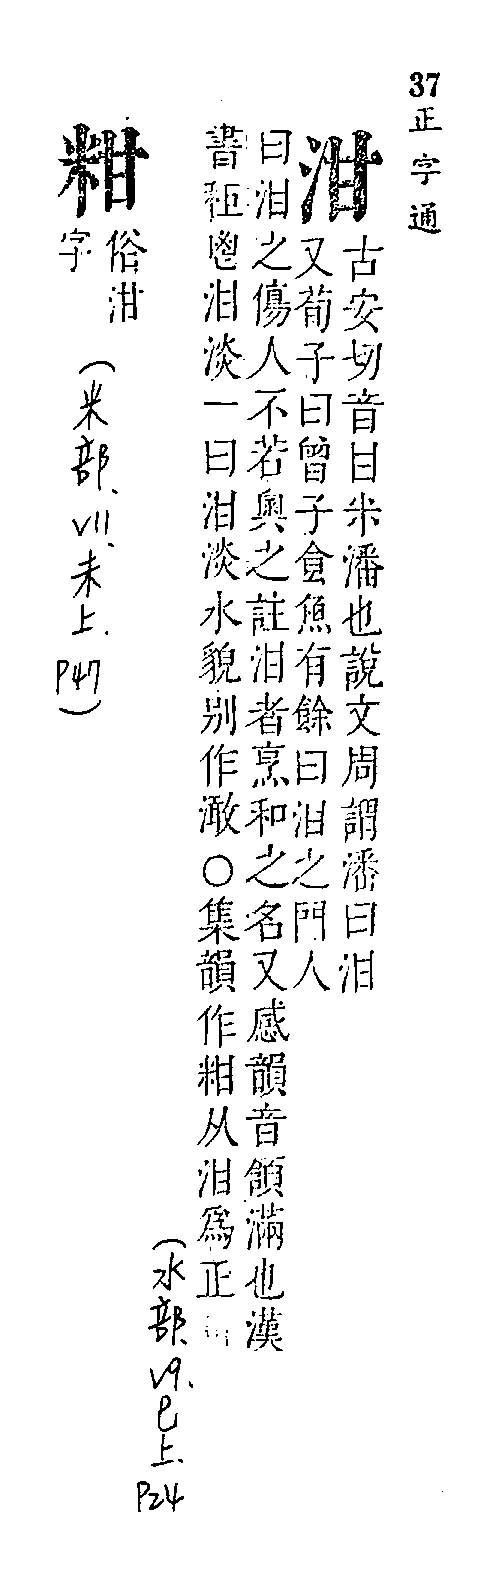 37
正字通
泔
古安切音甘米潘也說文周謂潘曰泔
又荀子曰曾子食魚有餘曰泔之門人
曰泔之傷人不若奧之註泔者烹和之名又感韻音頷滿也漢
書秬鬯泔淡一曰泔淡水貌別作澉○集韻作粓从泔爲正
(水部、V9.巳上.P24
粓
俗泔
字
(米部、VII.未上.P47)